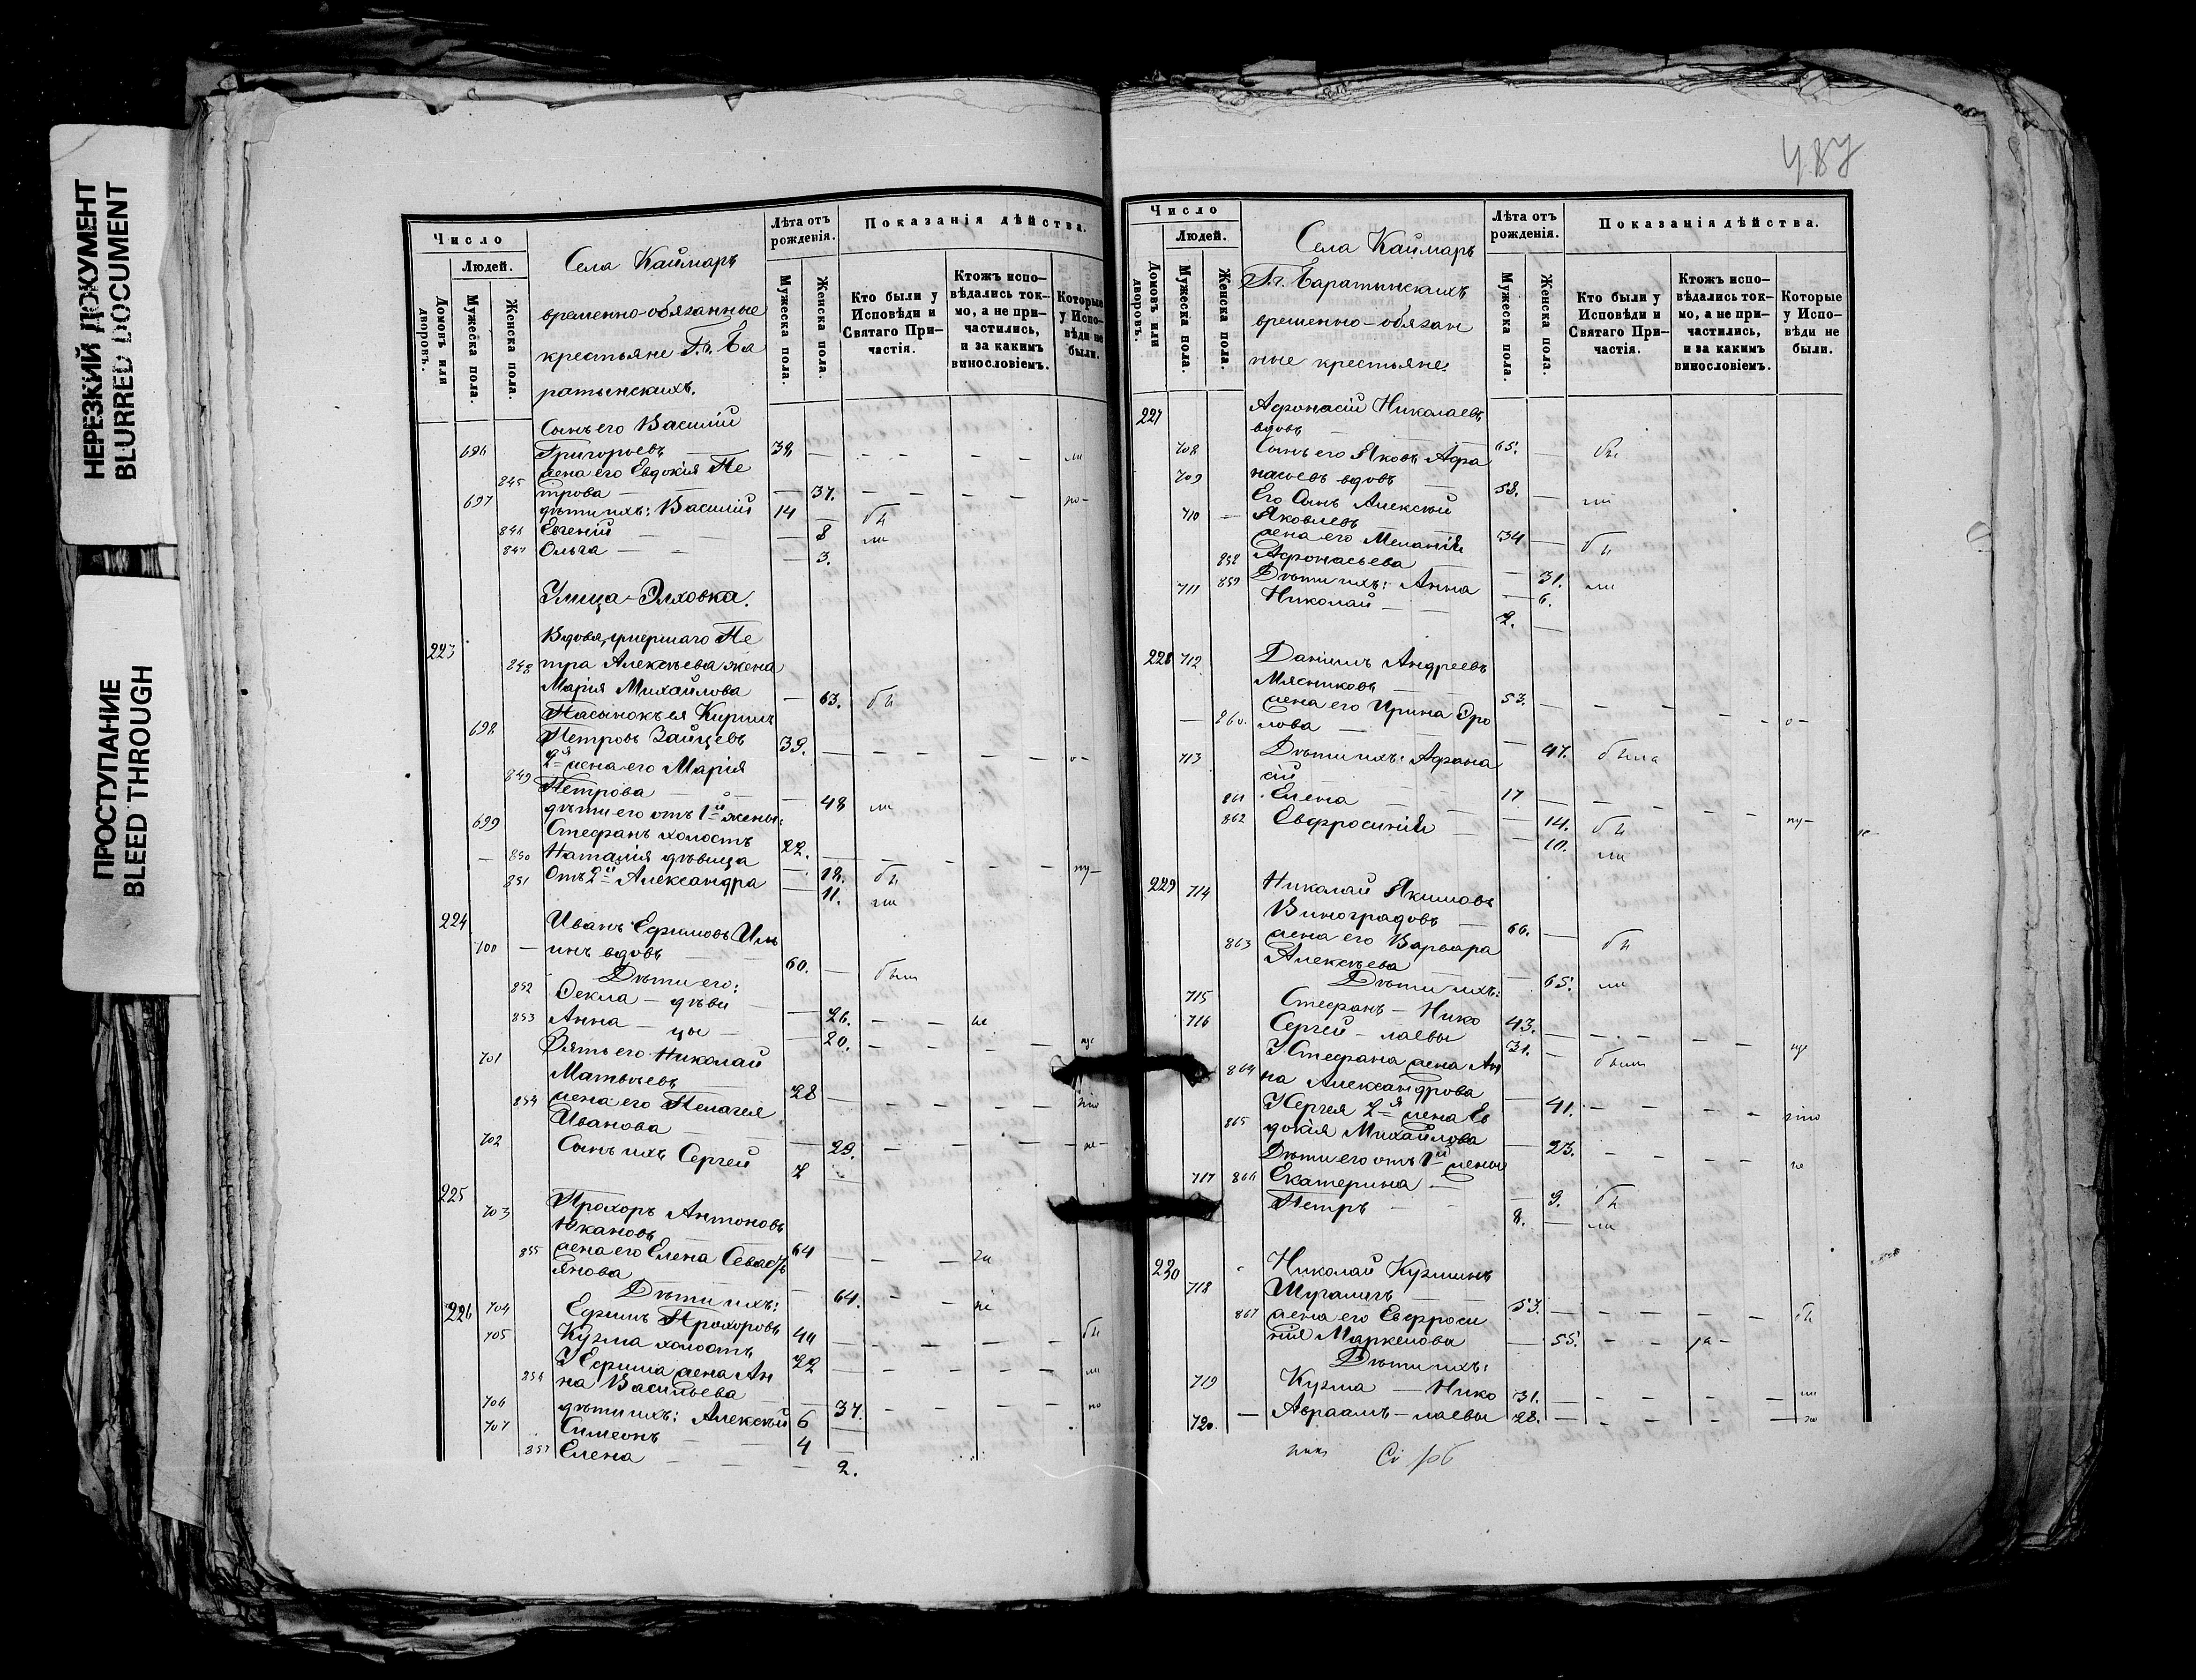 НЕРЕЗКИЙ ДОКУМЕНТ
BLURRED DOCUMENT
ПРОСТУПАНИЕ
BLEED THROUGH
Число
Людей.
Домовъ или дворовъ.
Мужеска пола.
Женска пола.
Села Каймаръ
временно-обязанные
крестьяне Г.г. Ба
ратынскихъ.
Лѣта отъ рожденія.
Мужеска пола.
Женска пола.
Показанія дѣйства.
Кто были у Исповѣди и Святаго Причастія.
Ктожъ исповѣдались токмо, а не причастились, и за какимъ винословіемъ.
Которые у Исповѣди не были.
Сынъ его Василій
696 Григорьевъ — 38 — — — — — ли
жена его Евдокія Пе
845 трова — — 37. — — — — — по-
697 дѣти их: Василій 14 — бы
846 Евгеній — — — 8 ли
847 Ольга — — — 3.
Улица-Олховка.
Вдова, умершаго Пе
223 848 тра Алексѣева жена
Марія Михайлова — 63. бы
Пасынокъ ея Кирилъ
698 Петровъ Зайцевъ 39. — — — — — — о-
2я жена его Марія
849 Петрова — — — 48 ли
дѣти его отъ 1й жены:
699 Стефанъ холостъ 22. — — — — — ну-
— 850 Наталія дѣвица — 18. бы
851 Отъ 2й Александра — 11. ли
224 Иванъ Ефимовъ Иль
700 — инъ вдовъ — 60. — были
Дѣти его:
852 Ѳекла — дѣви — 26. — — не
853 Анна — цы — 20. — — — — ну
Зять его Николай
701 Матвѣевъ — 28 — — — — — что
жена его Пелагея
854 Иванова — — 29. — — — — не-
702 Сынъ ихъ Сергей 2 —
225 Прохоръ Антоновъ
703 Юкановъ — 64 — — — — за
жена его Елена Севастья
855 янова — 64. — — не
Дѣти ихъ:
226 704 Ефимъ Прохоровъ 40 — — — — — бы
705 Кузма холостъ 22 — — — — — ли
У Ефима жена Ан
856 на Васильева — 37. — — — — — но
706 дѣти ихъ: Алексѣй 6 —
707 Симеонъ — — 4 —
857 Елена — — — 2.
487
Число
Людей.
Домовъ или дворовъ.
Мужеска пола.
Женска пола.
Села Каймаръ
Г.г. Баратынскихъ
временно-обязан
ные крестьяне.
Лѣта отъ рожденія.
Мужеска пола.
Женска пола.
Показанія дѣйства.
Кто были у Исповѣди и Святаго Причастія.
Ктожъ исповѣдались токмо, а не причастились, и за какимъ винословіемъ.
Которые у Исповѣди не были.
227 Афонасій Николаевъ
708 вдовъ — — 65. — бы
Сынъ его Яковъ Афа
709 насьевъ вдовъ — 58. — ли
Его Сынъ Алексѣй
710 — Яковлевъ — 34 — бы
жена его Меланія
858 Афонасьева — — 31. ли
859 Дѣти ихъ: Анна — 6.
711 Николай — — 2. —
228 712 Даніилъ Андреевъ
Мясниковъ — 53. — — — — — о-
жена его Ирина Фро
— 860. лова — — 47. была
713 Дѣти ихъ: Афана
сій — — 17 — — — — — ну-
861 Елена — — — 14. бы
862 Евфросинія — — 10. ли
229 714 Николай Якимовъ
Виноградовъ — 66. — бы
863 жена его Варвара
Алексѣева — 65. ли
Дѣти ихъ:
715 Стефанъ — Нико 43. — — — — — ну
716 Сергей — лаевы 31. — были
У Стефана жена Ан
864 на Александрова — 41. — — — — что
У Сергея 2я жена Ев
865 докія Михайлова — 23. — — — — не
Дѣти его отъ 1й жены
717 866 Екатерина — — 9. бы
Петръ — — 8. — ли
230 Николай Кузминъ
718 Шугалинъ — 53. — — — — — бы
867 жена его Евфроси
нія Маркелова — 55. — — за-
Дѣти ихъ:
719 Кузма — Нико 31. — — — — — ли
720. — Авраамъ — лаевы 28. — — — — — но